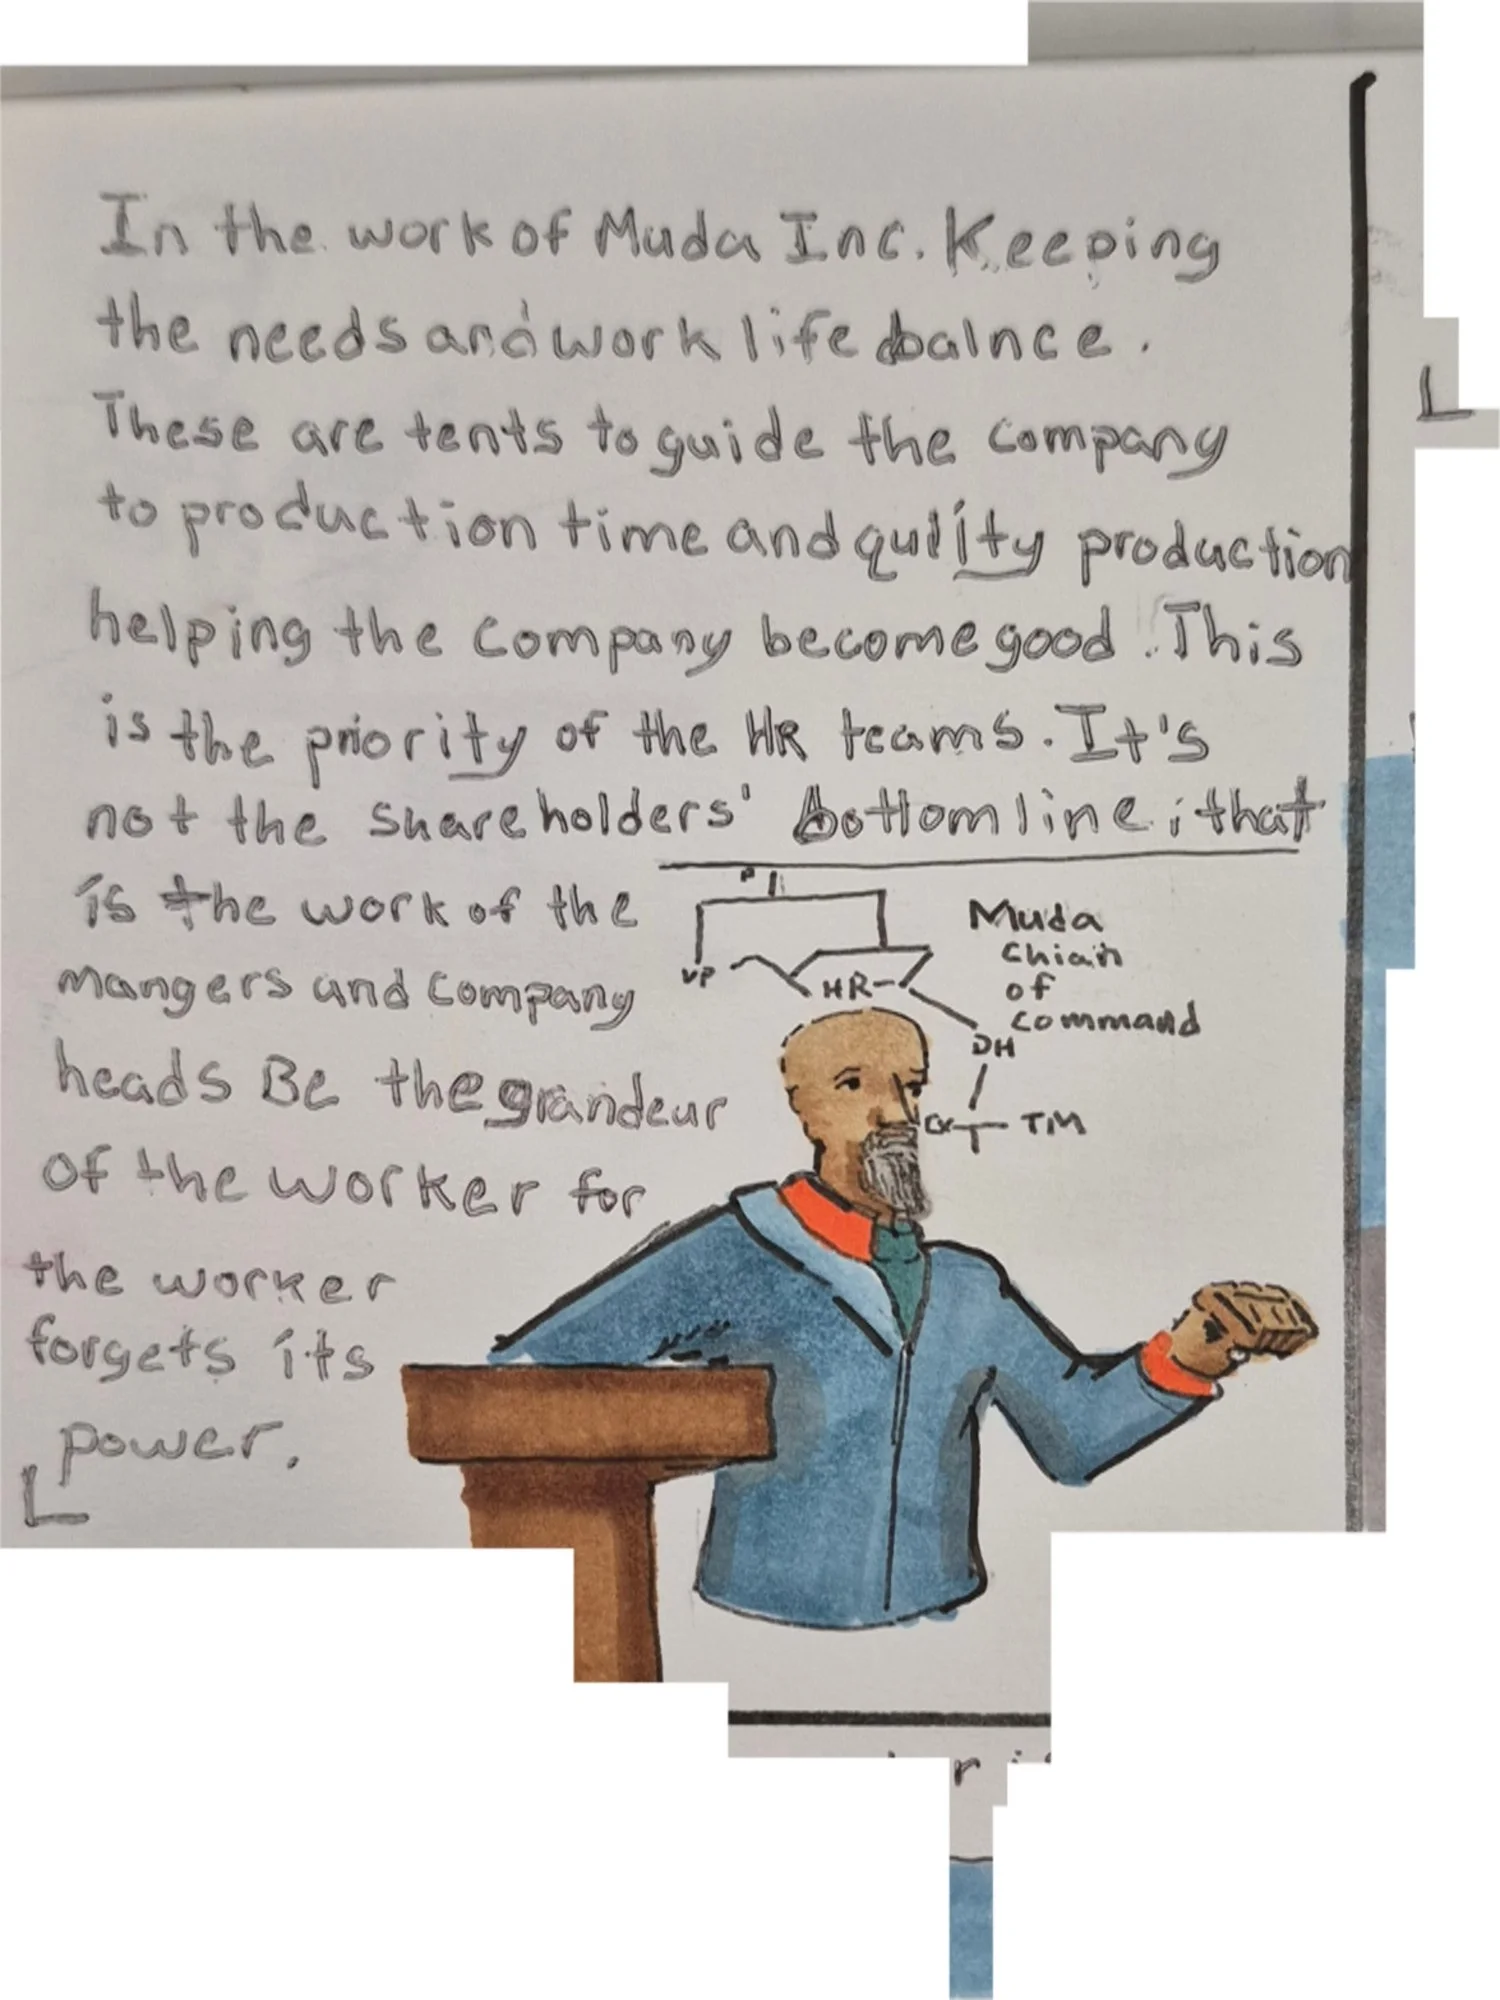 In the work of Muda Inc. Keeping
the needs and work life balnce.
These are tents to guide the company
to production time and qulity production
helping the company become good. This
is the priority of the HR teams. It's
not the shareholders' bottom line; that
is the work of the
mangers and company
heads Be the grandeur
of the worker for
the worker
forgets its
power.
P
VP
HR
Muda
Chian
of
command
DH
TM